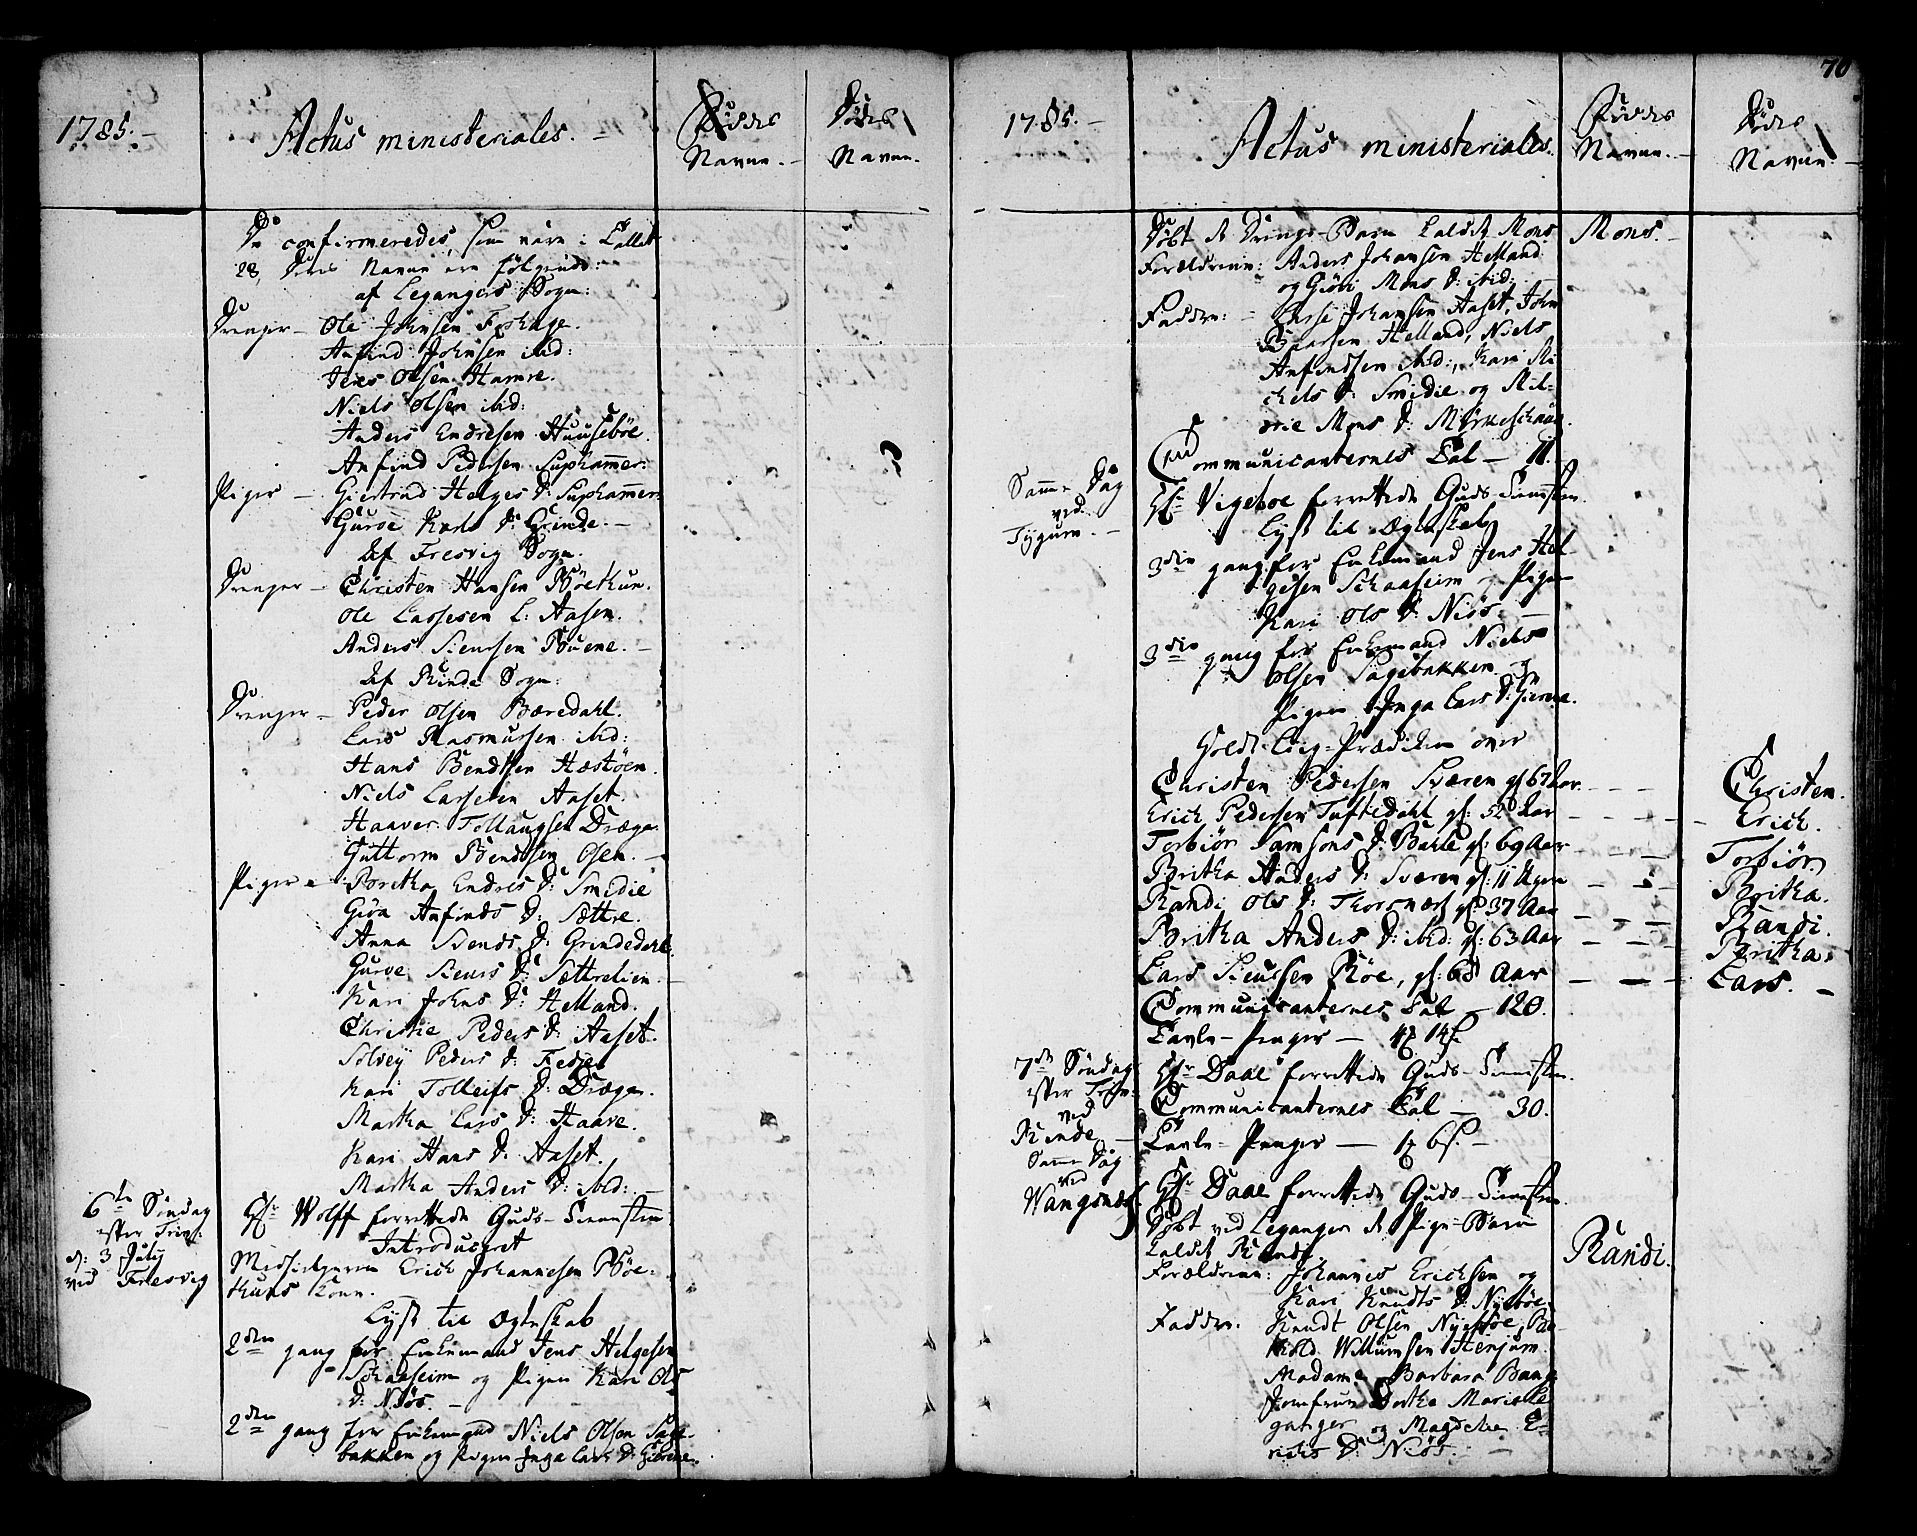 1785.
Actus ministeriales.
Fødde
Navne.
Døde
Navne.
De confirmeredes, som vare i Tallet
28, Deres Navne ere følgende:
af Legangers Sogn:
Drenger – Ole Johnsen Frohage.
Anfind Johnsen ibid:
Jens Olsen Hamre.
Niels Olsen ibid:
Anders Endresen Huusebøe.
Anfind Pedersen Suphammer:
Piger – Giertrud Helges D: Suphammer:
Gurve Karls D: Grinde. –
Af Fresvig Sogn.
Drenger – Christen Hansen Bøetkun.
Ole Lassesen L: Aasen.
Anders Siursen Tuene. –
Af Rinde Sogn:
Drenger – Peder Olsen Bæredahl.
Lars Rasmussen ibid:
Hans Bendtsen Hæstøen.
Niels Larssen Aaset.
Haaver Tollaugsen Dræge.
Guttorm Bendtsen Osen. –
Piger – Britha Endres D: Smedie
Giøa Anfinds D: Sættre.
Anna Svends D: Grindedahl.
Gurve Siurs D: Sættrelien. –
Kari Johns D: Helland.
Christie Peders D: Aaset.
Solvey Peders D: Fedje
Kari Tolleifs D: Dræge.
Martha Lars D: Haave.
Kari Hans D: Aaset.
Martha Anders D: ibid: –
6te Søndag
efter Trin:
d: 3 July
ved Fresvig
Hr Wolff forrettede Guds-Tienesten
Introduceret
Erich Johannesen Bøe-
thuns Kone.
Lyst til Ægteskab
2den gang for Enkemand Jens Helgesen
Schaasheim og Pigen Kari Ols
D: Niøs. –
2den gang for Enkemand Niels Olsen Sage-
bakken og Pigen Inga Lars D: Gierene.
70
1785. –
Actus ministeriales.
Fødde
Navne. –
Døde
Navne. –
Døbt et Drenge-Barn kaldet Mons.
Mons. –
Forældrene: Anders Johansen Helland
og Giøri Mons D: ibid:
Faddere: – Lasse Johansen Aaset, John
Baarsen Helland, Niels
Anfindsen ibid:, Kari Mi-
chels D: Smedie og Mil-
drie Mons D: Mørkeschaug.
Communicanternes Tal – 11.
Samme Dag
ved
Tygum. –
Hr Vigeboe forrettede Guds-Tienesten.
Lyst til Ægteskab
3die gang for Enkemand Jens Hel-
gesen Schaasheim og Pigen
Kari Ols D: Niøs. –
3die gang for Enkemand Niels
Olsen Sagebakken og
Pigen Inga Lars D: Gierene.
Holdt Liig-Prædiken over
Christen Pedersen Sværen gl: 67 Aar. – – – Christen.
Erich Pedersen Tuftedahl gl: 52 Aar – – – Erich.
Torbiør Samsons D: Bahle gl: 69 Aar – – Torbiør.
Britha Anders D: Sværen gl: 11 Uger – – – Britha.
Randi Ols D: Thorsnæs gl: 37 Aar – – – Randi.
Britha Anders D: ibid: gl: 63 Aar – – – Britha.
Lars Siursen Røe, gl: 68 Aar – – – Lars. –
Communicanternes Tal – 120.
Tavle-Penger –
7de Søndag
efter Trin:
ved
Rinde –
Hr Daae forrettede Guds-Tienesten.
Communicanternes Tal – 30.
Tavle-Penger –
Samme Dag
ved
Wangsnæs.
Hr Daae forrettede Guds-Tienesten.
Døbt ved Leganger et Pige-Barn
kaldet Randi.
Randi.
Forældrene: Johannes Erichsen og
Kari Knudts D: Nybøe
Faddere. Knudt Olsen Nybøe, Bo-
thold Willumsen Henjum
Madame Barbara Bang
Jomfrue Dortha Maria Le-
ganger og Magdela E-
richs D: Niøs. –